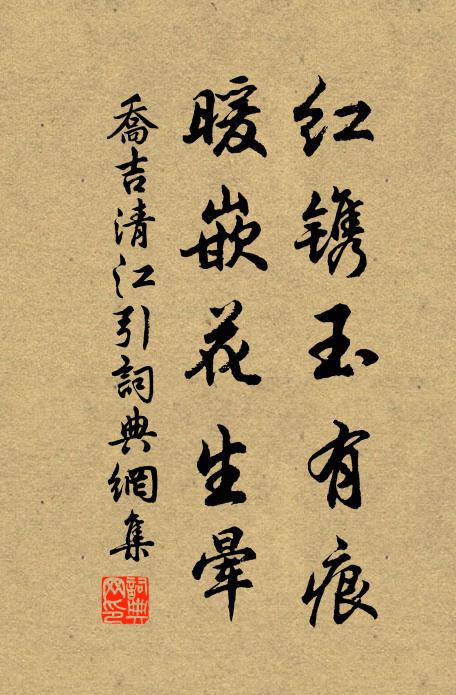 红镌玉有痕
暖嵌花生晕
喬吉清江引詞典網集
詞典网印